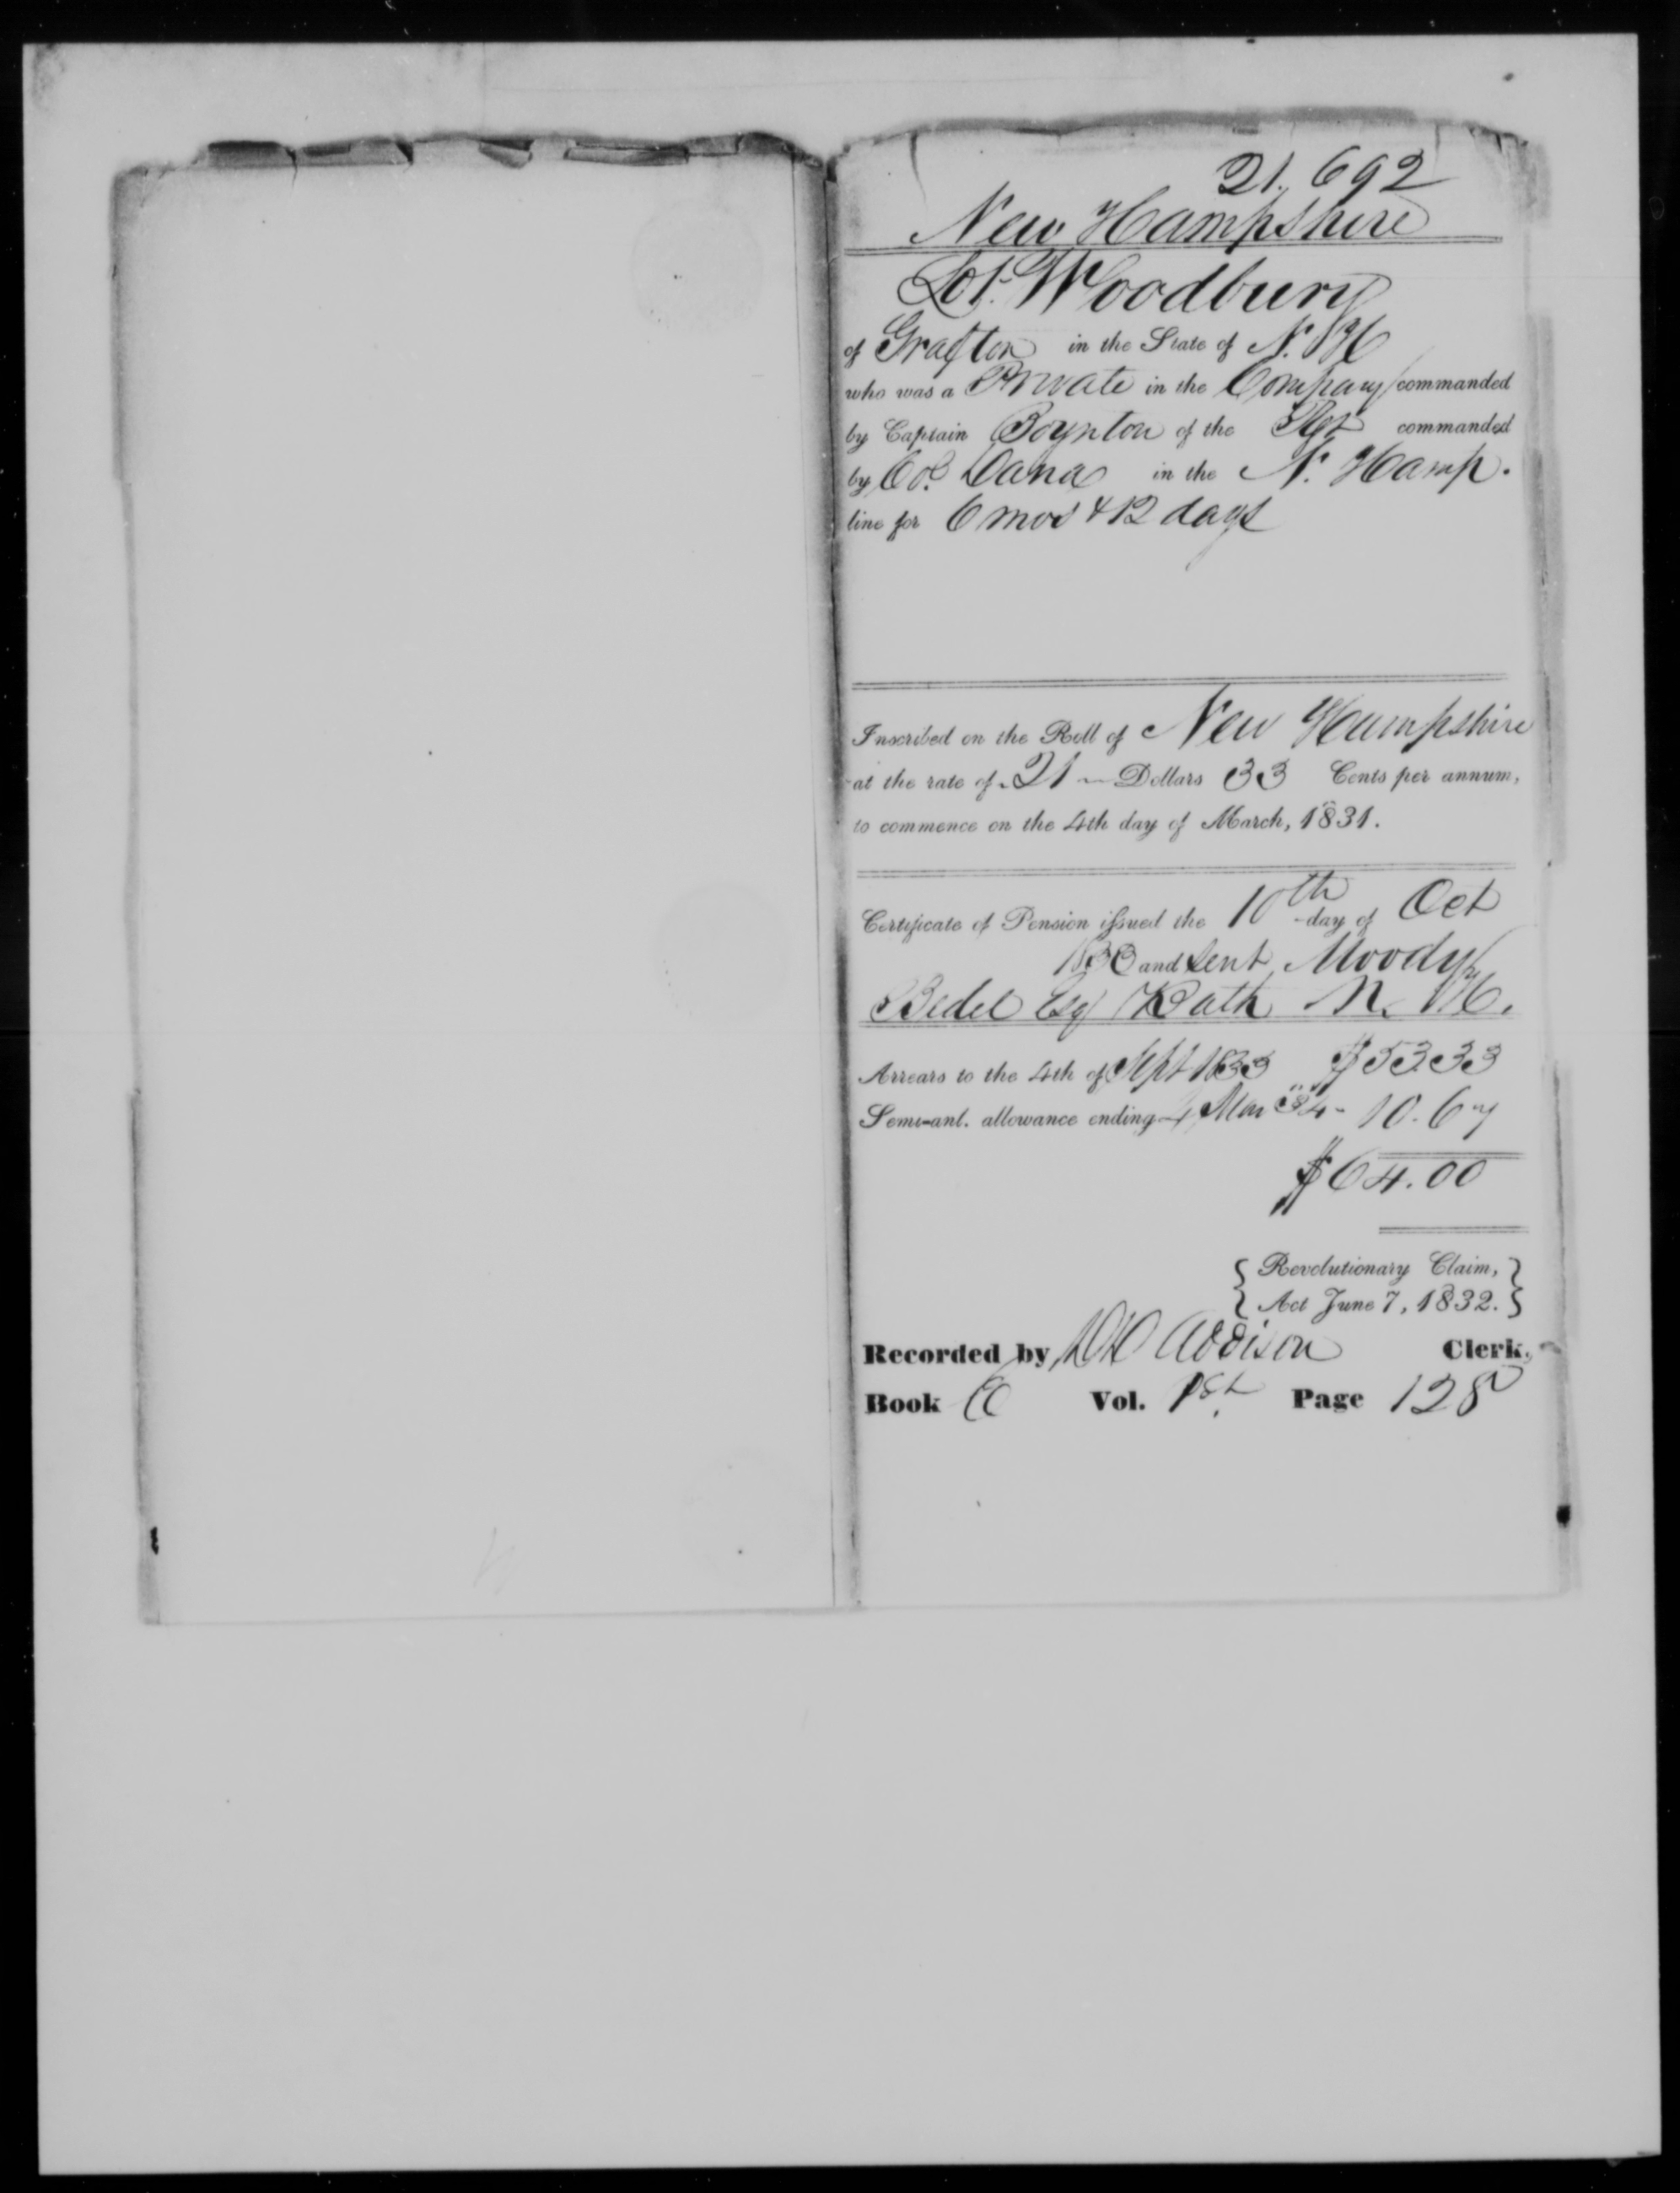 21,692
New Hampshire
Lot Woodbury
of Grafton in the State of N. H
who was a Private in the Company commanded
by Captain Boynton of the Regt commanded
by Col. Dana in the N. Hamp.
line for 6 mos & 12 days
Inscribed on the Roll of New Hampshire
at the rate of 21 Dollars 33 Cents per annum,
to commence on the 4th day of March, 1831.
Certificate of Pension issued the 10th day of Oct
1833 and sent Moody
Bedel Esq Bath N. H.
Arrears to the 4th of Sept 1833 $53.33
Semi-anl. allowance ending 4 Mar 34 10.67
$64.00
Revolutionary Claim,
Act June 7, 1832.
Recorded by Addison Clerk,
Book Vol. 1st Page 128